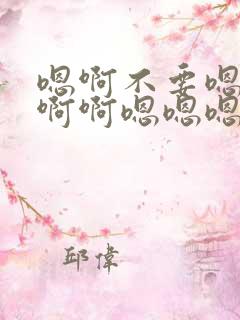 嗯啊不要嗯
啊啊嗯嗯嗯
邱偉